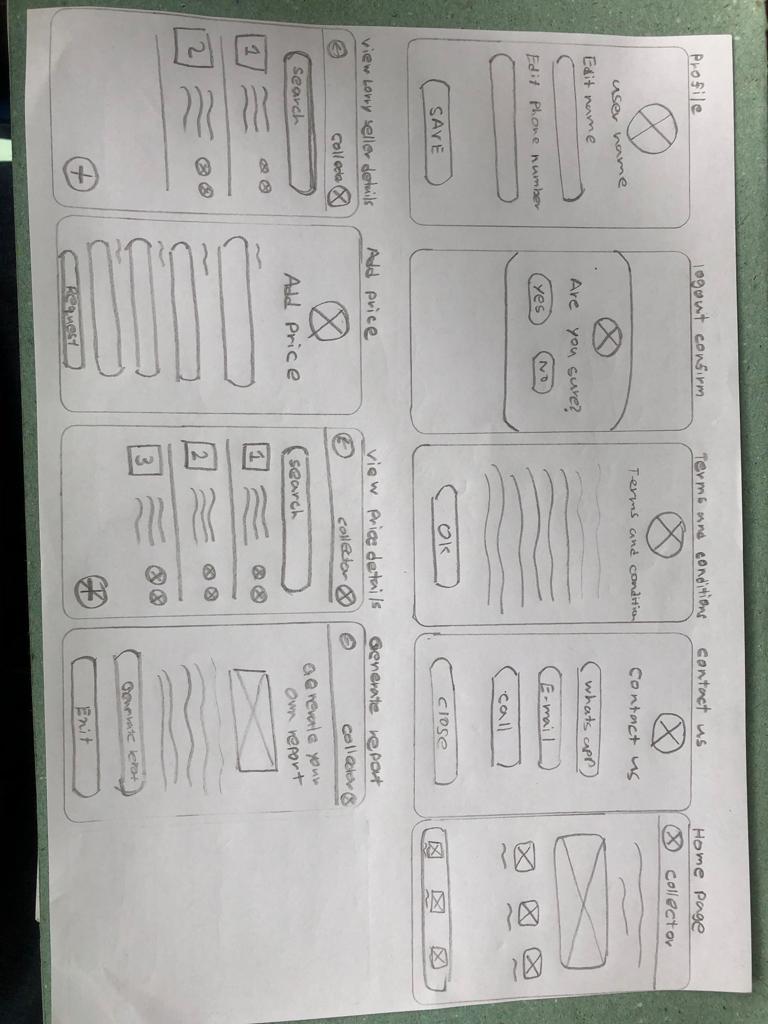 Profile
user name
Edit name
Edit phone number
SAVE
logout confirm
Are you sure?
yes
No
Terms and conditions
Terms and condition
Ok
contact us
contact us
whatsapp
E-mail
call
close
Home page
collector
search
1
2
Add price
Add price
Request
view price details
collector
search
1
2
3
Generate report
collector
Generate your
own report
Exit